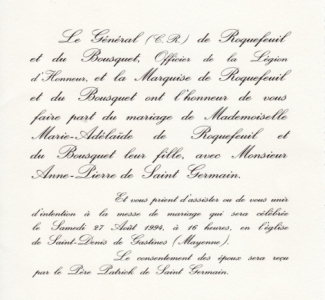 Le Général (C.R.) de Roquefeuil
et du Bousquet, Officier de la Légion
d'Honneur, et la Marquise de Roquefeuil
et du Bousquet ont l'honneur de vous
faire part du mariage de Mademoiselle
Marie-Adélaïde de Roquefeuil et
du Bousquet leur fille, avec Monsieur
Anne-Pierre de Saint Germain.
Et vous prient d'assister ou de vous unir
d'intention à la messe de mariage qui sera célébrée
le Samedi 27 Août 1994, à 16 heures, en l'église
de Saint-Denis de Gastines (Mayenne).
Le consentement des époux sera reçu
par le Père Patrick de Saint Germain.